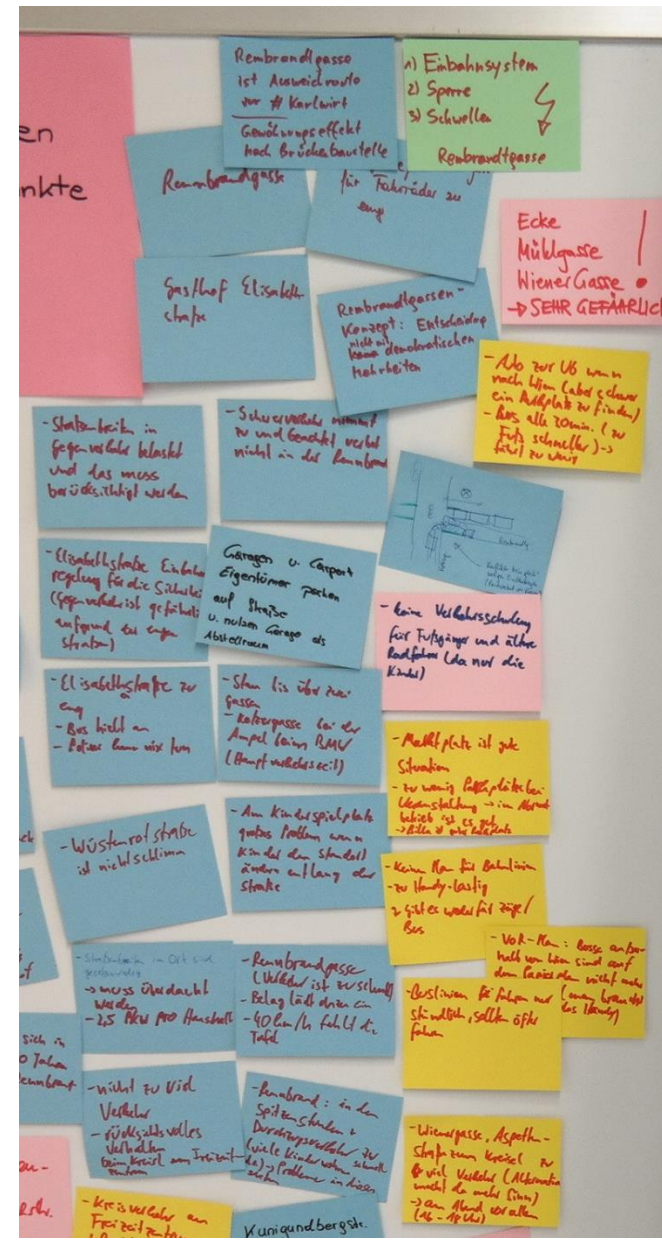 en
nkte
Rembrandtgasse
ist Ausweichroute
vor # Karlwirt
Gewöhnungseffekt
nach Brückenbaustelle
1) Einbahnsystem
2) Sperre
3) Schwellen
Rembrandtgasse
Rennbrandgasse
für Fahrräder zu
eng
Ecke
Mühlgasse
WienerGasse !
→ SEHR GEFÄHRLICH
Gasthof Elisabeth-
straße
Rembrandtgassen-
Konzept: Entscheidung
nicht mit
keine demokratischen
Mehrheiten
- Auto zur U6 wenn
nach Wien (aber schwer
ein Parkplatz zu finden)
- Bus alle 20min. (zu
Fuß schneller) →
fährt zu wenig
- Straßenbreiten in
gegenverkehr belastet
und das muss
berücksichtigt werden
- Schwerverkehr nimmt
zu und
nicht in der Rennbrand
- Elisabethstraße Einbahn
regelung für die Sicherheit
(Gegenverkehr ist gefährlich
aufgrund der engen
Straßen)
Garagen u. Carport
Eigentümer parken
auf Straße
u. nutzen Garage als
Abstellraum
- keine Verkehrsschulung
für Fußgänger und ältere
Radfahrer (da nur die
Kinder)
- Elisabethstraße zu
eng
- Bus hielt an
- Polizei kann nix tun
- Stau bis über zwei
gassen
- Ketzergasse bei der
Ampel beim BMW
(Hauptverkehrszeit)
- Marktplatz ist gute
Situation
- zu wenig Parkplätze bei
Veranstaltung → im Normal
betrieb ist es gut
- Wüstenrotstraße
ist nicht schlimm
- Am Kinderspielplatz
großes Problem wenn
Kinder den Standort
ändern entlang der
straße
- Keinen Plan für Bahnlinien
- zu Handy-lastig
→ gibt es weder für Züge/
Bus
- VOR-Plan: Busse außer
halb von Wien sind auf
dem Papier dann nicht mehr
(man braucht
das Handy)
- Straßenbreiten im Ort sind
→ muss überdacht
werden
- 2,5 PKW PRO Haushalt
- Rennbrandgasse
(Verkehr ist zu schnell)
- Belag lädt dazu ein
- 40 km/h fehlt die
Tafel
- Buslinien fahren nur
stündlich, sollten öfter
fahren
sich in
Jahren
Rennbrand
- nicht zu viel
Verkehr
- rücksichtsvolles
Verhalten
beim Kreisl am Freizeit
zentrum
- Rennbrand: in den
Spitzenstunden
Durchzugsverkehr zu
(viele Kinder wohnen
da) → Probleme in diesen
- Wienergasse, Aspetten-
straße zum Kreisel zu
viel Verkehr (Alternative
macht da mehr Sinn)
→ am Abend vor allem
(16 - 18 Uhr)
- Kreisverkehr am
Freizeitzentrum
Kunigundbergstr.